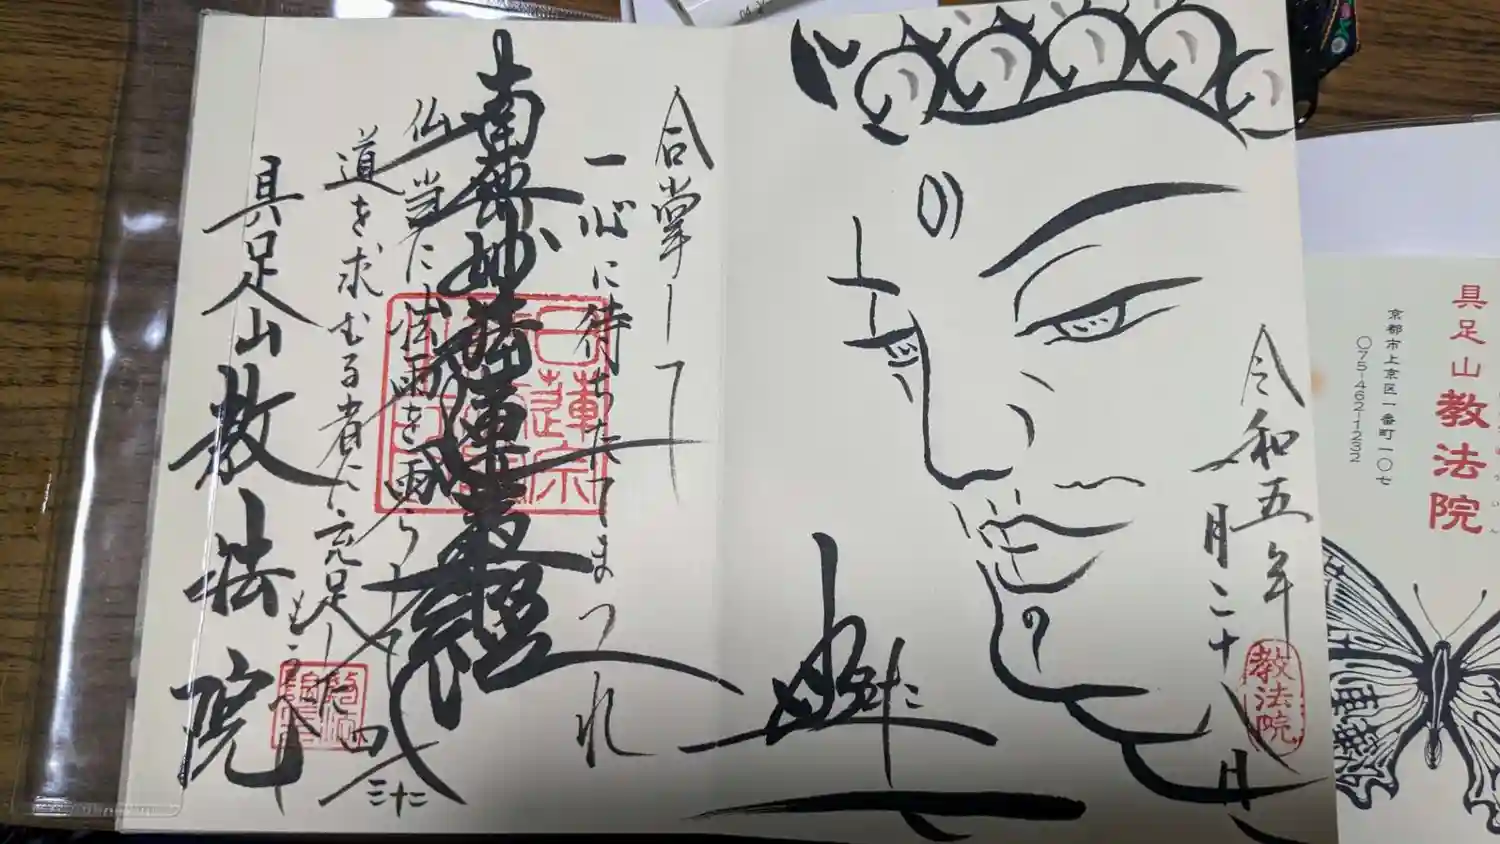 具足山
教法院
京都市上京区一番町一〇七
〇75-462-1232
令和五年
月二十八日
教法院
合掌して
一心に待ちたてまつれ
南無妙法蓮華経
日蓮宗
仏当に法雨を雨らして
道を求むる者に充足したもうべし
具足山教法院